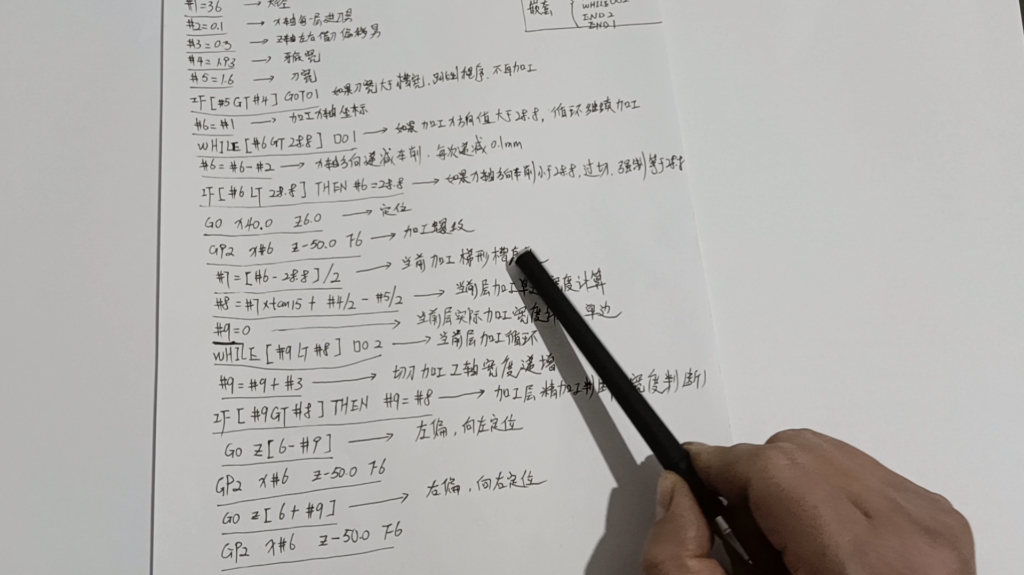 #1=36 → 大径
#2=0.1 → X轴每一层进刀量
#3=0.3 → Z轴左右借刀偏移量
#4=1.93 → 牙底宽
#5=1.6 → 刀宽
IF[#5 GT #4] GOTO1 如果刀宽大于槽宽,跳出程序.不再加工
#6=#1 → 加工X轴坐标
WHILE[#6 GT 28.8] DO1 → 如果加工X方向值大于28.8,循环继续加工
#6=#6-#2 → X轴方向递减车削.每次递减0.1mm
IF[#6 LT 28.8] THEN #6=28.8 → 如果X轴方向车削小于28.8,过切.强制等于28.8
G0 X40.0 Z6.0 → 定位
GP2 X#6 Z-50.0 F6 → 加工螺纹
#7=[#6-28.8]/2 → 当前加工梯形槽
#8=#7×tan15+#4/2-#5/2 → 当前层加工单 宽度计算
#9=0 → 当前层实际加工宽度 单边
WHILE[#9 LT #8] DO2 → 当前层加工循环
#9=#9+#3 → 切刀加工Z轴宽度递增
IF[#9 GT #8] THEN #9=#8 → 加工层精加工判 宽度判断)
G0 Z[6-#9] → 左偏,向左定位
GP2 X#6 Z-50.0 F6
G0 Z[6+#9] → 右偏,向右定位
GP2 X#6 Z-50.0 F6
嵌套
WHILE DO2
END2
END1